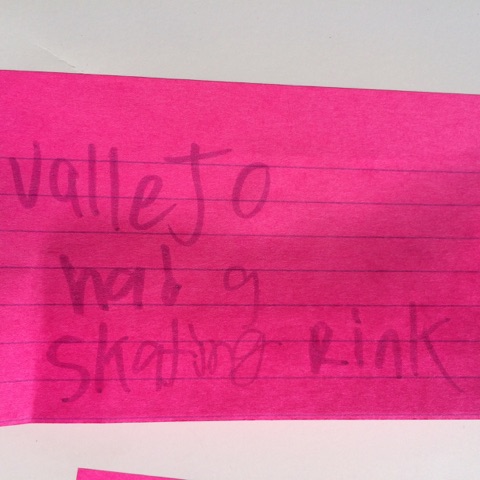 valleJo
had a
skating Rink